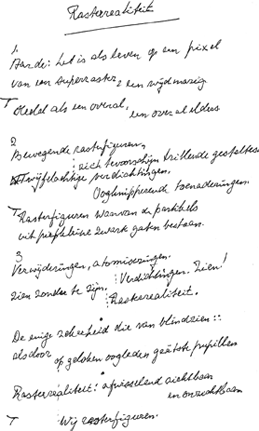 Rasterrealiteit
1
Aarde: het is als leven op een pixel
van een superraster, een wijdmazig
T Heelal als een overal, een overal elders
2
Bewegende rasterfiguren,
zich tevoorschijn trillende gestaltes
twijfelachtige verdichtingen.
Ooghypperende toenaderingen.
T Rasterfiguren waarvan de partikels
uit gaten bestaan.
3
Verwijderingen, atomiseringen.
Verdichtingen. Zien!
Zien zonder te zijn.
Rasterrealiteit.
De enige zekerheid die van blindzien::
als door op gesloten oogleden geëtste pupillen
Rasterrealiteit: afwisselend zichtbaar
en onzichtbaar
T Wij rasterfiguren.